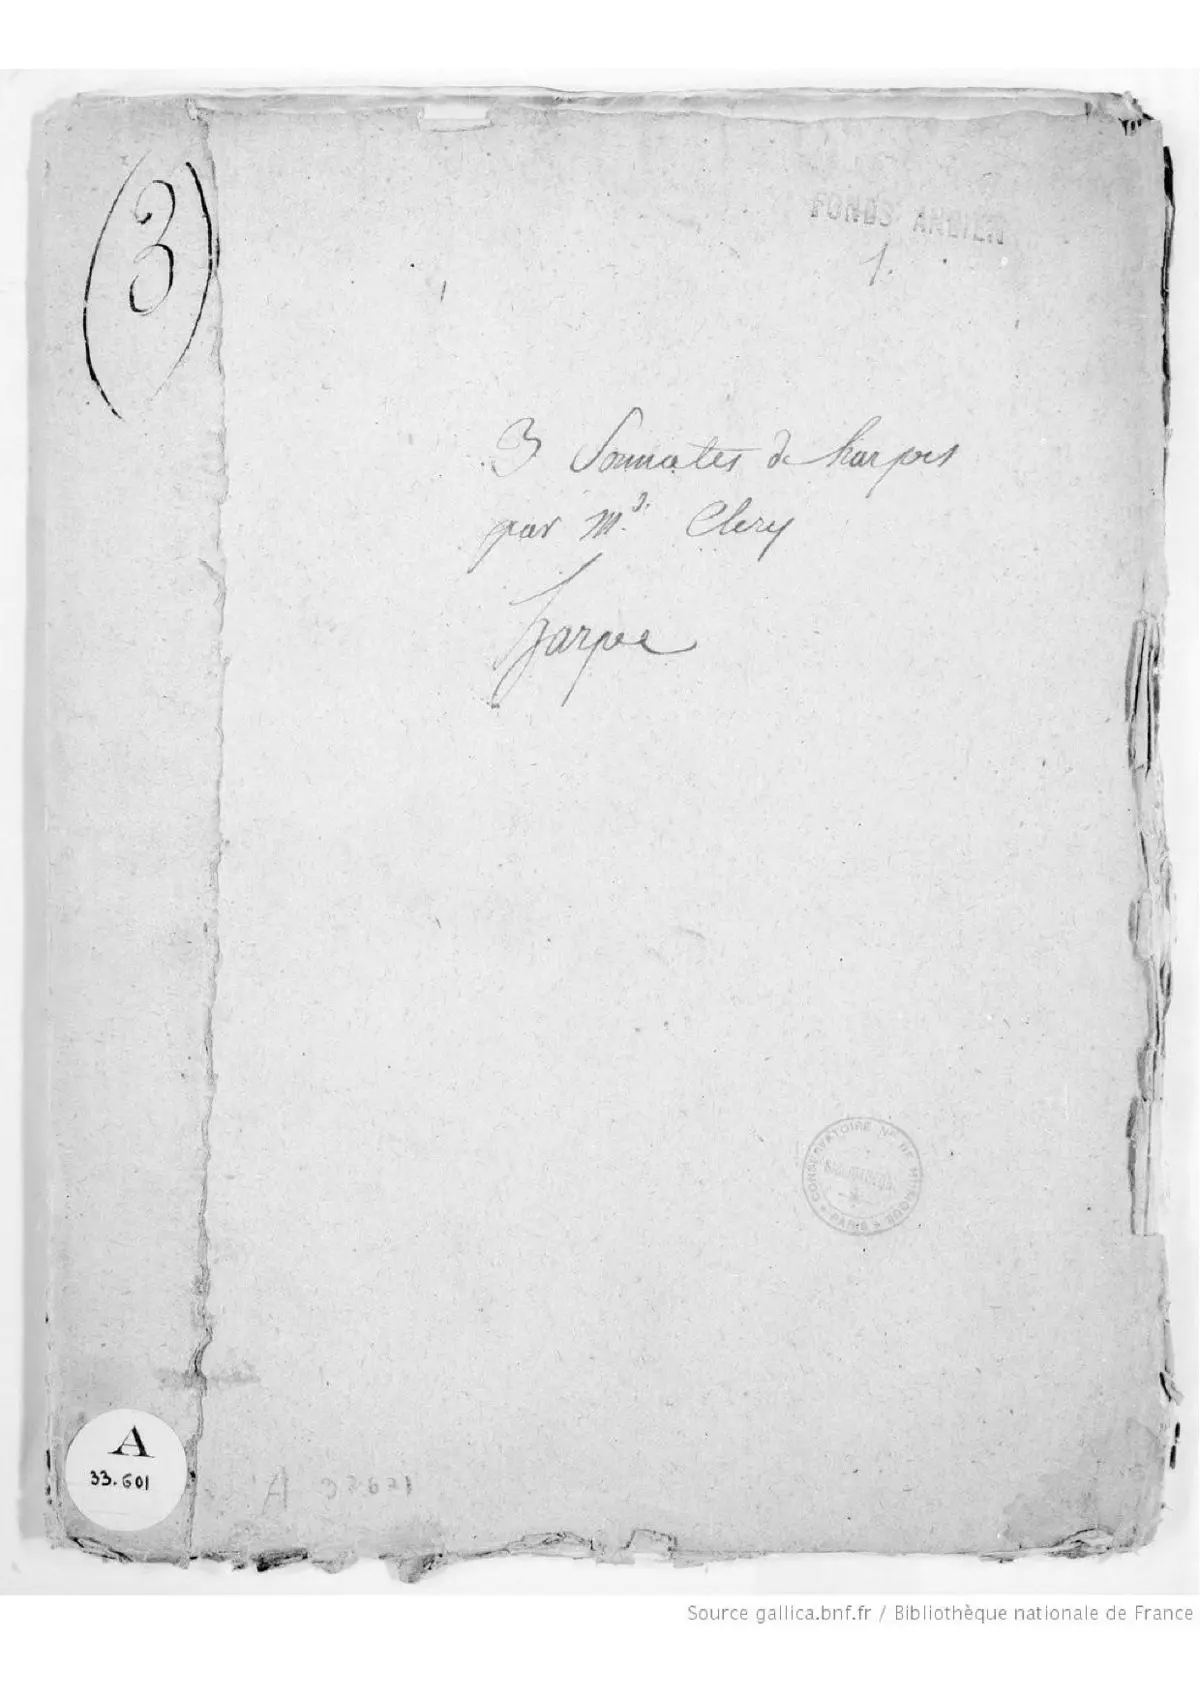 (3)
FONDS ANCIEN
1.
3 Sonnates de harpes
par Md. Clery
harpe
CONSERVATOIRE NAL DE MUSIQUE
* PARIS *
A
33.601
A 33.601
Source gallica.bnf.fr / Bibliothèque nationale de France